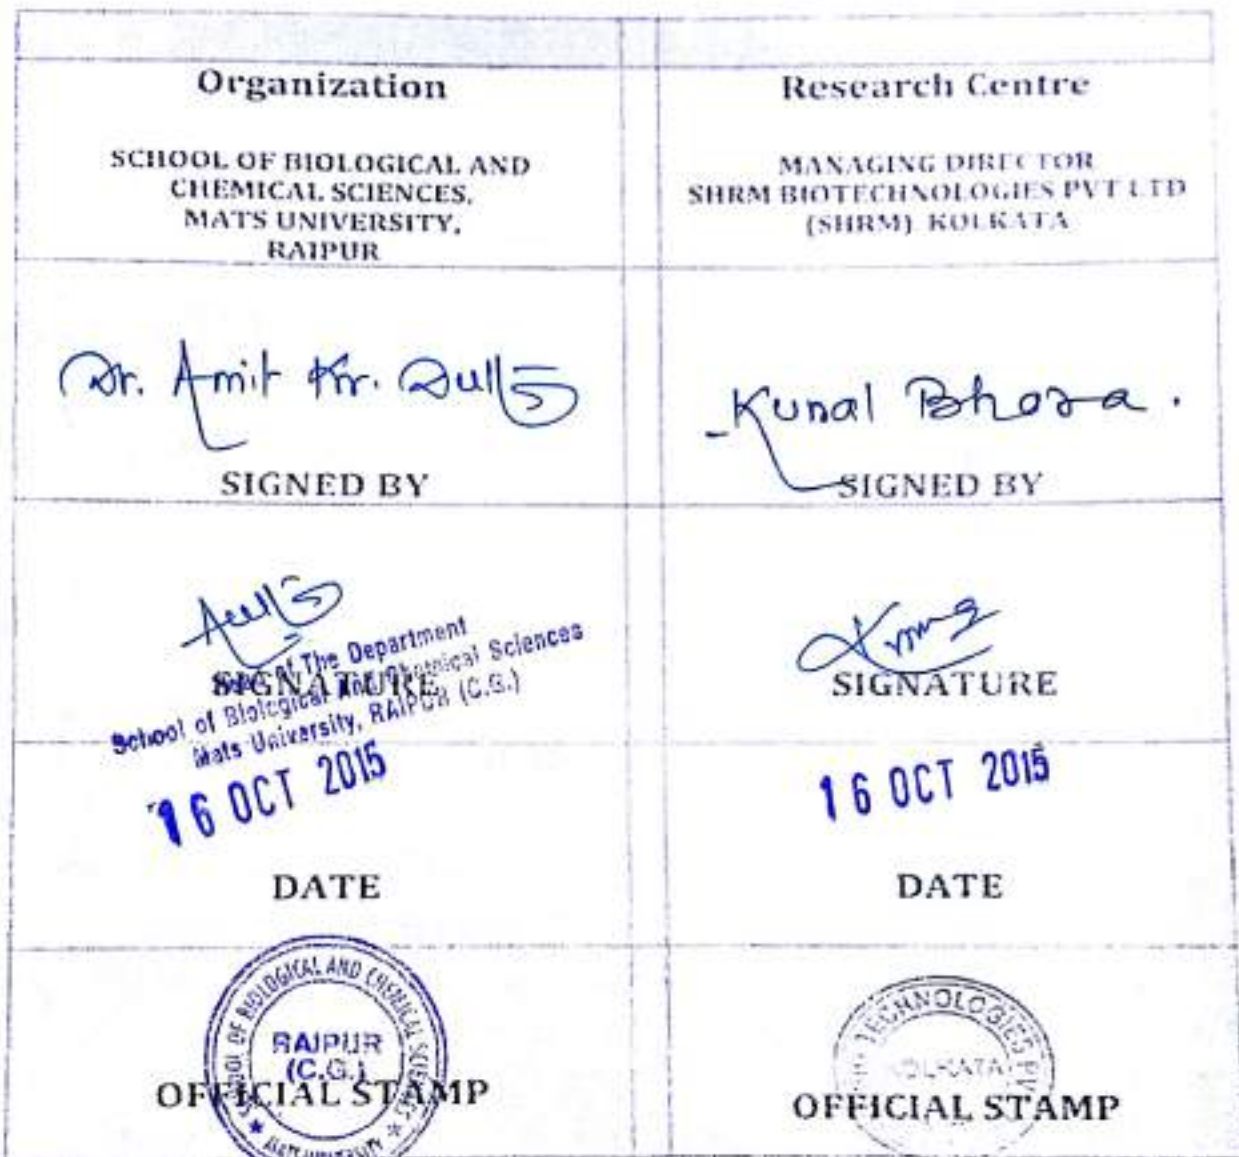 Organization
SCHOOL OF BIOLOGICAL AND
CHEMICAL SCIENCES,
MATS UNIVERSITY,
RAIPUR
Research Centre
MANAGING DIRECTOR
SHRM BIOTECHNOLOGIES PVT LTD
(SHRM) KOLKATA
Dr. Amit Kr.
SIGNED BY
Kunal
SIGNED BY
of The Department
School of Biological And Chemical Sciences
Mats University, RAIPUR (C.G.)
SIGNATURE
SIGNATURE
16 OCT 2015
DATE
16 OCT 2015
DATE
SCHOOL OF BIOLOGICAL AND CHEMICAL SCIENCES
RAIPUR
(C.G.)
MATS UNIVERSITY
OFFICIAL STAMP
TECHNOLOGIES PV
KOLKATA
OFFICIAL STAMP